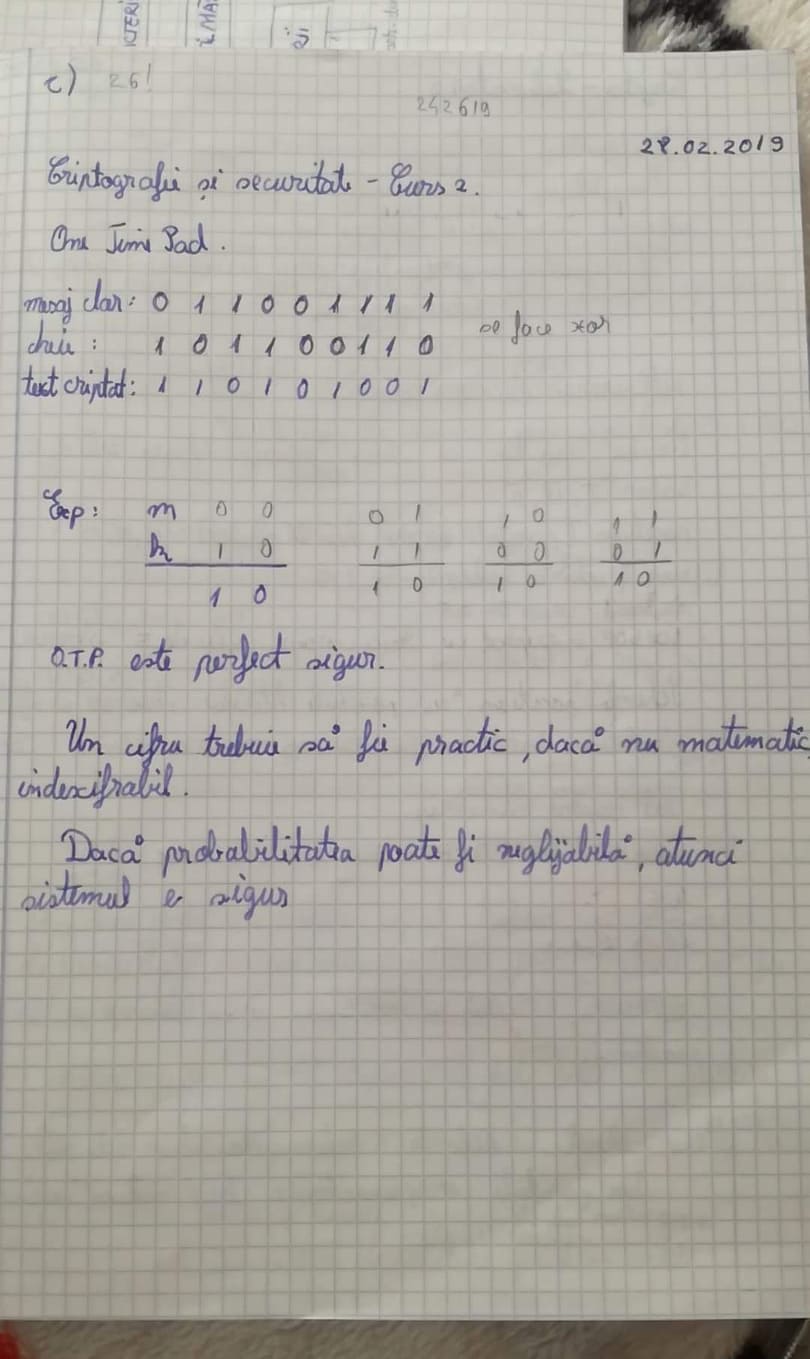 c) 26!
242619
28.02.2019
Criptografie și securitate - Curs 2.
One Time Pad.
mesaj clar: 0 1 1 0 0 1 1 1 1
se face xor
cheie: 1 0 1 1 0 0 1 1 0
text criptat: 1 1 0 1 0 1 0 0 1
Exp: m 0 0 0 1 1 0 1 1
k 1 0 1 1 0 0 0 1
1 0 1 0 1 0 1 0
O.T.P. este perfect sigur.
Un cifru trebuie să fie practic, dacă nu matematic,
indescifrabil.
Dacă probabilitatea poate fi neglijabilă, atunci
sistemul e sigur